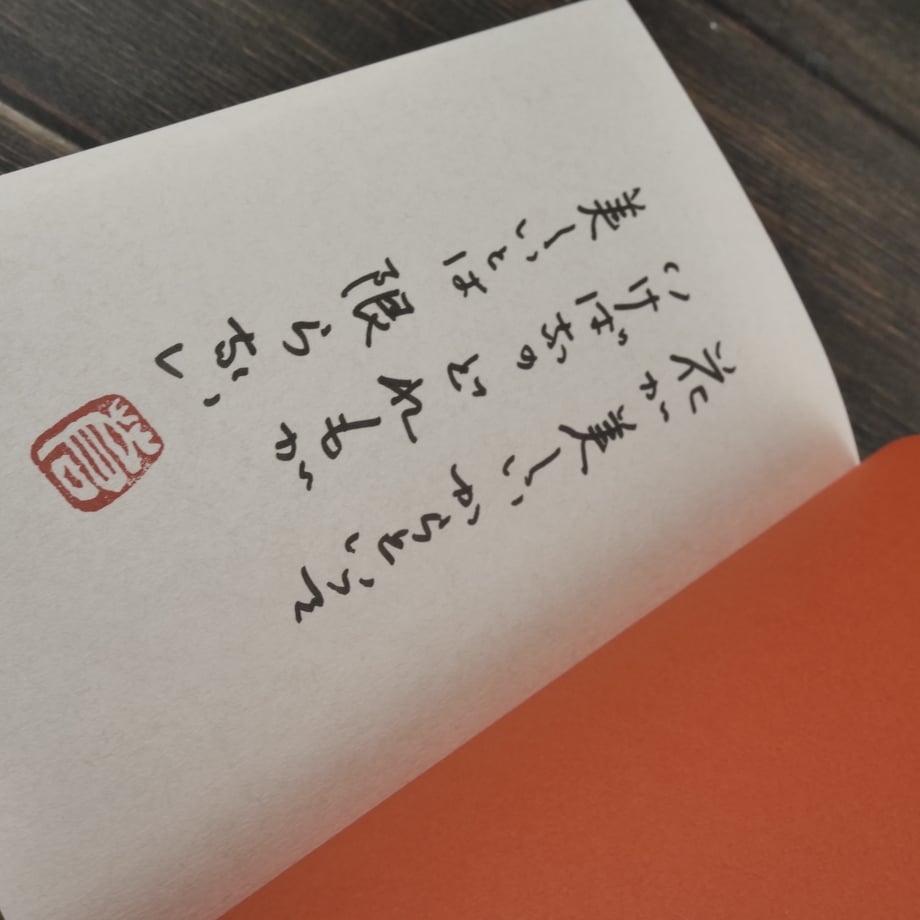 花が美しいからといって
いけばなのどれもが
美しいとは限らない